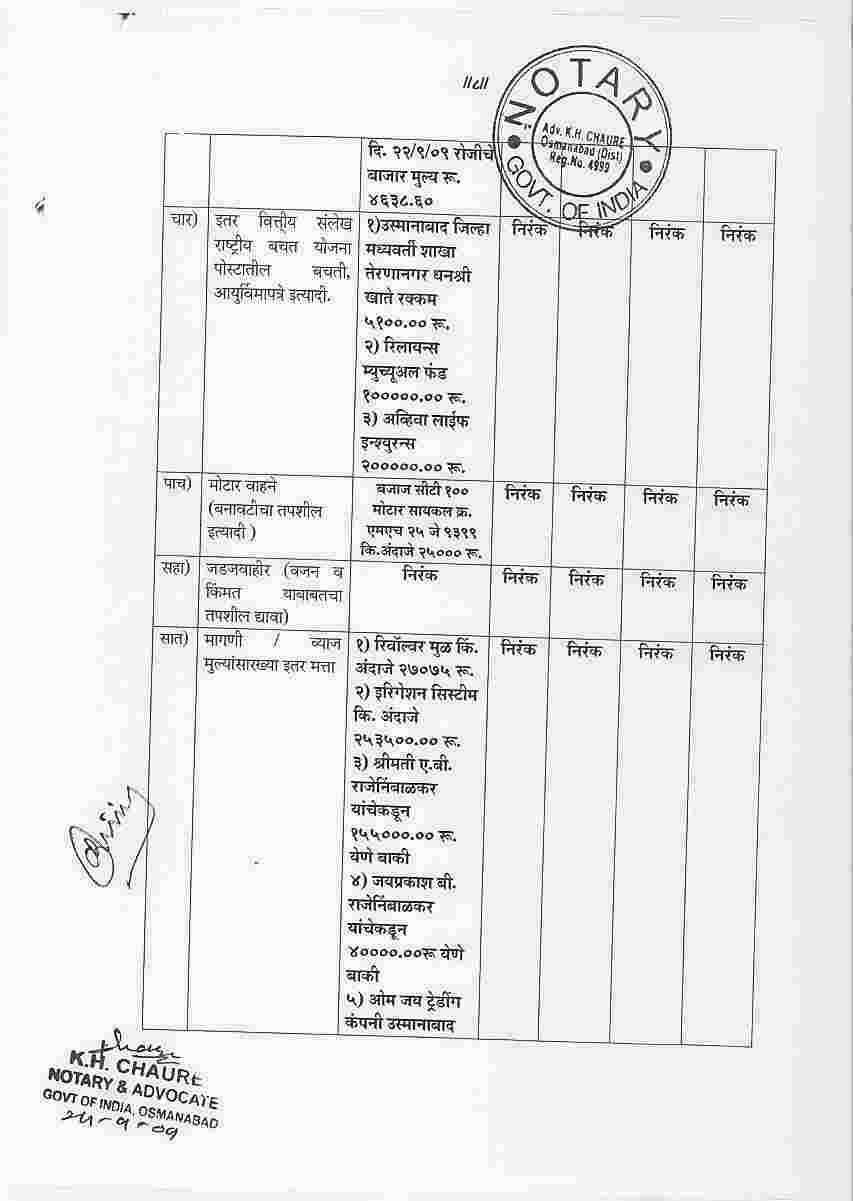 ॥८॥
NOTARY
Adv. K.H. CHAURE
Osmanabad (Dist)
Reg.No. 4999
GOVT. OF INDIA
दि. २२/९/०९ रोजीचे
बाजार मुल्य रू.
४६३८.६०
चार) इतर वित्तीय संलेख राष्ट्रीय बचत योजना पोस्टातील बचती, आयुर्विमापत्रे इत्यादी.
१)उस्मानाबाद जिल्हा
मध्यवर्ती शाखा
तेरणानगर धनश्री
खाते रक्कम
५१००.०० रू.
२) रिलायन्स
म्युच्यूअल फंड
१०००००.०० रू.
३) अव्हिवा लाईफ
इन्श्युरन्स
२०००००.०० रू.
निरंक निरंक निरंक निरंक
पाच) मोटार वाहने
(बनावटीचा तपशील
इत्यादी )
बजाज सीटी १००
मोटार सायकल क्र.
एमएच २५ जे ९३९९
कि.अंदाजे २५००० रू.
निरंक निरंक निरंक निरंक
सहा) जडजवाहीर (वजन व
किंमत याबाबतचा
तपशील द्यावा)
निरंक निरंक निरंक निरंक निरंक
सात) मागणी / व्याज
मुल्यांसारख्या इतर मत्ता
१) रिवॉल्वर मुळ किं.
अंदाजे २७०७५ रू.
२) इरिगेशन सिस्टीम
कि. अंदाजे
२५३५००.०० रू.
३) श्रीमती ए.बी.
राजेनिंबाळकर
यांचेकडून
१५५०००.०० रू.
येणे बाकी
४) जयप्रकाश बी.
राजेनिंबाळकर
यांचेकडून
४००००.००रू येणे
बाकी
५) ओम जय ट्रेडींग
कंपनी उस्मानाबाद
निरंक निरंक निरंक निरंक
K.H. CHAURE
NOTARY & ADVOCATE
GOVT OF INDIA, OSMANABAD
२५-९-०९